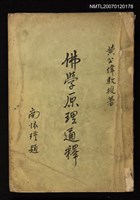 NMTL20070120178
黃公偉教授著
佛學原理通釋
南懷瑾題